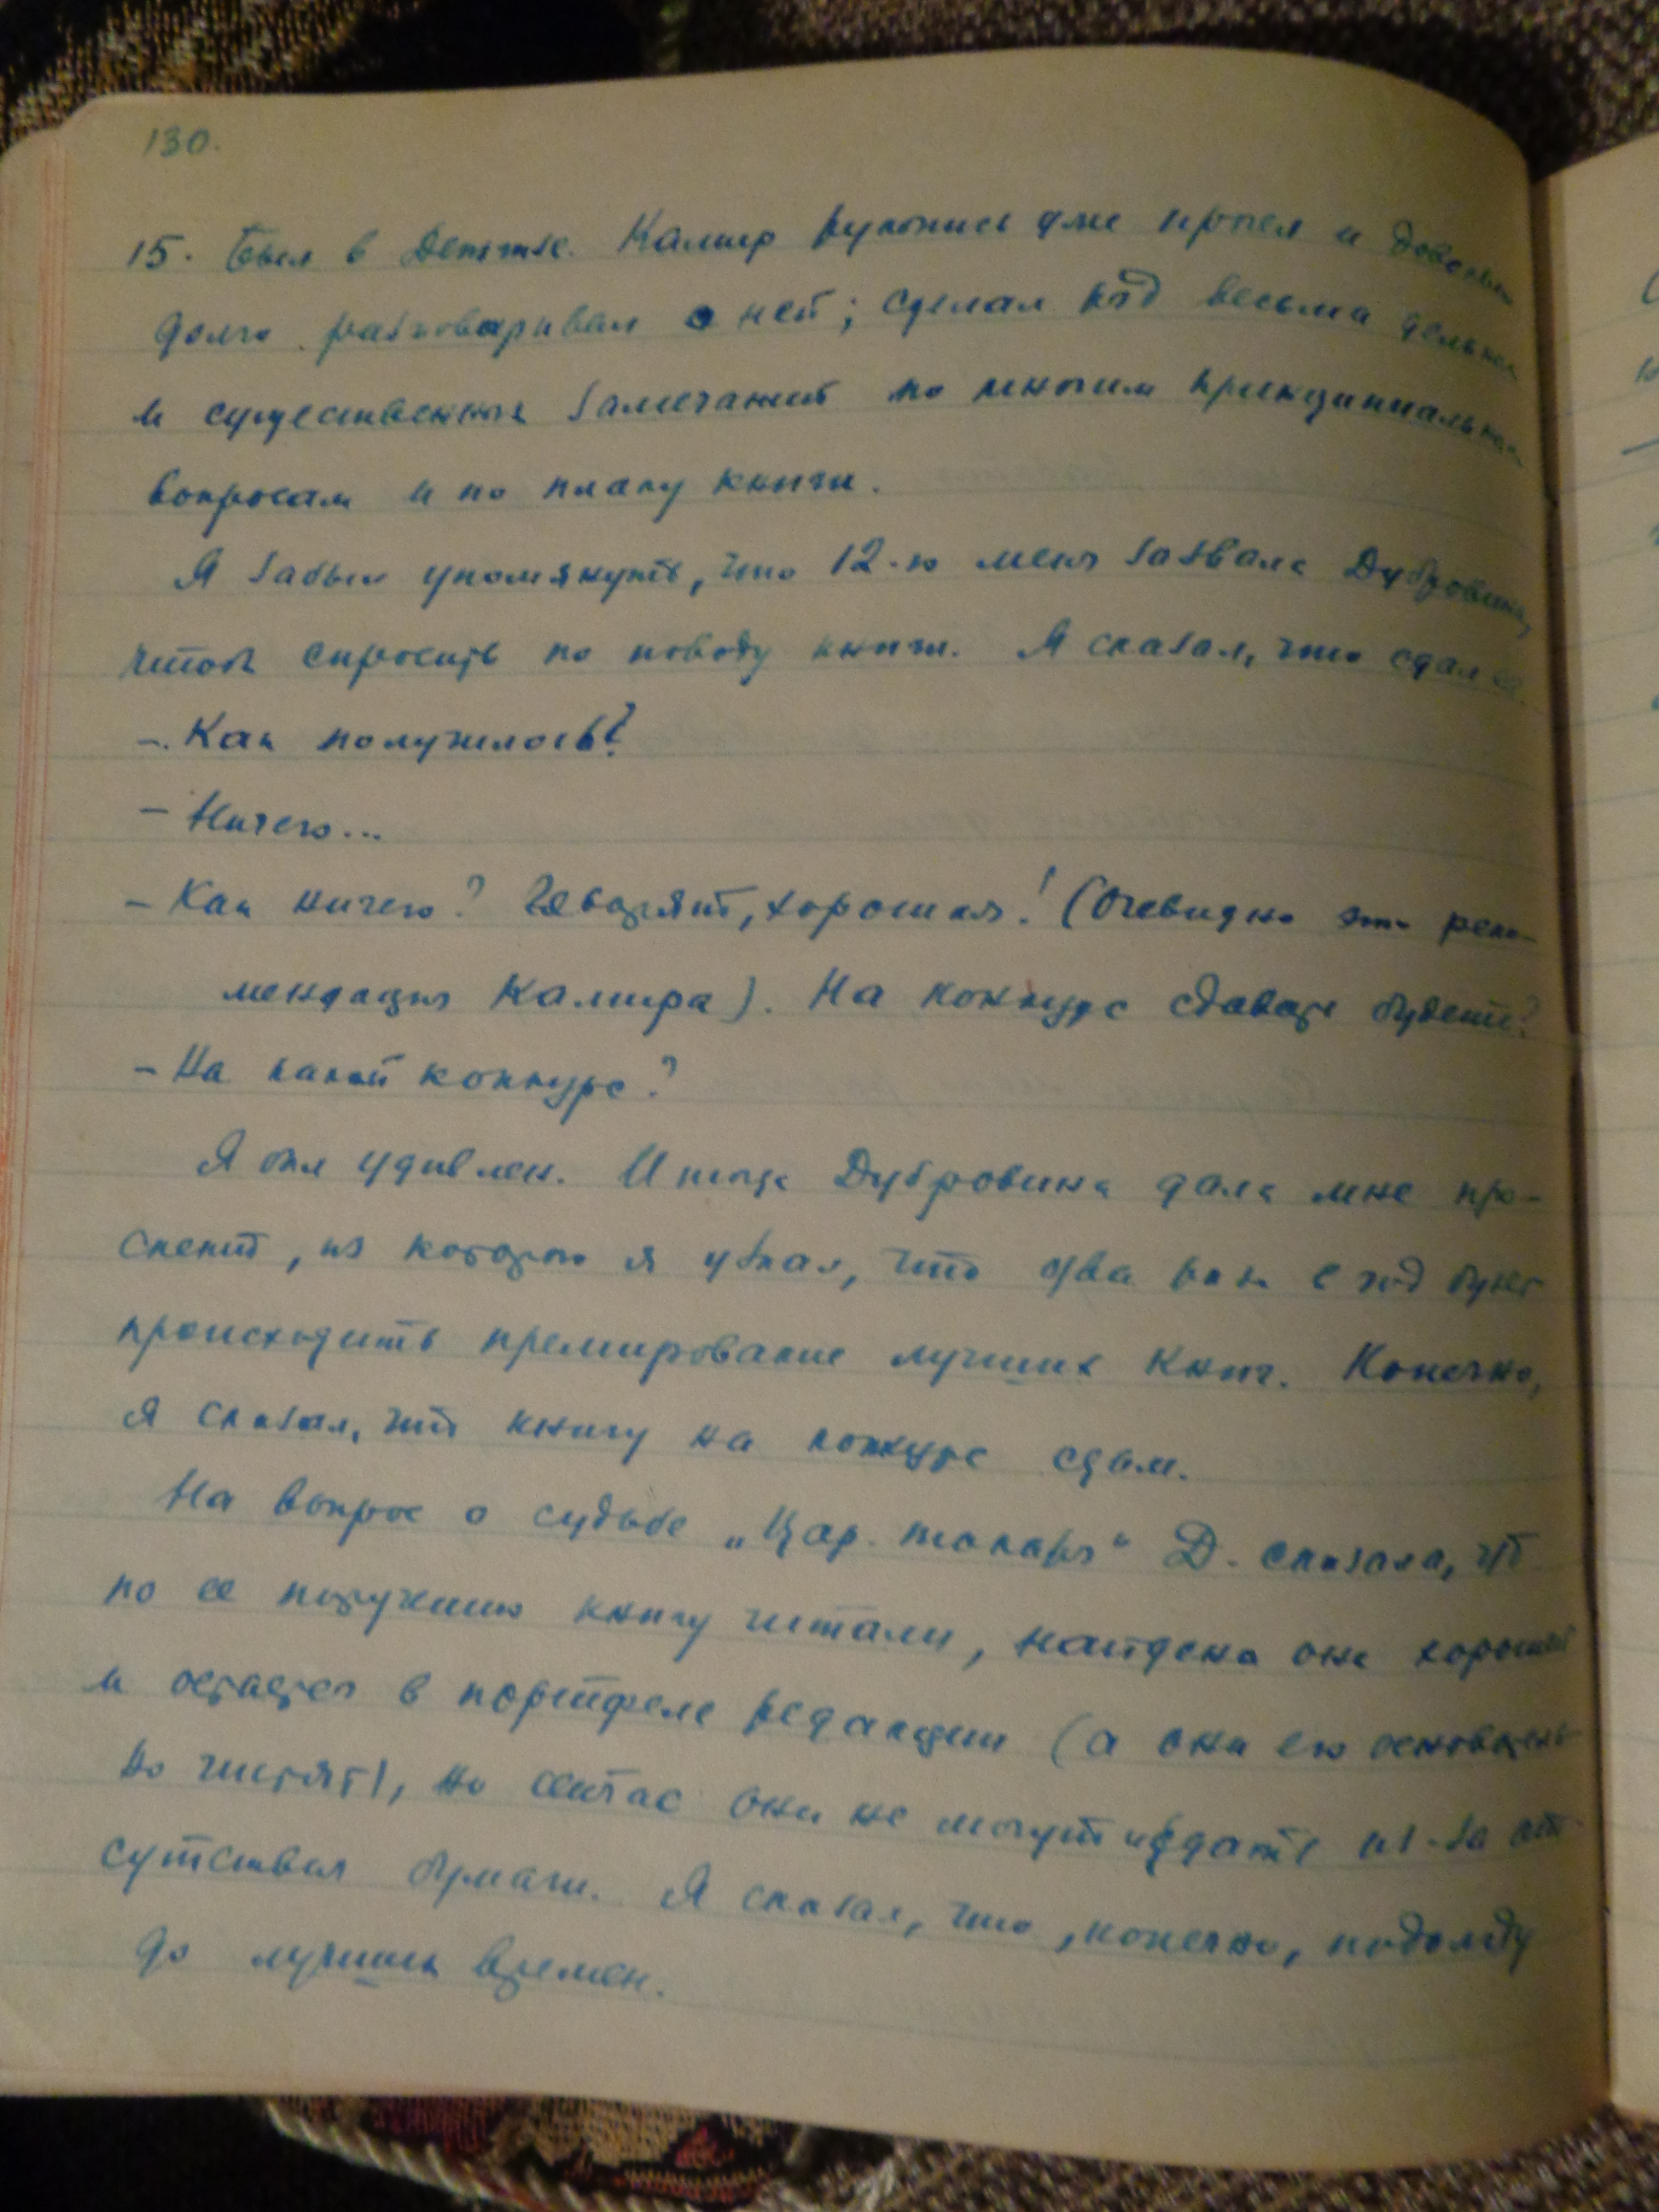 130.
15. Был в Детгизе. Камир рукопись уже прочел и довольно
долго разговаривал о ней; сделал ряд весьма дельных
и существенных замечаний по многим принципиальным
вопросам и по плану книги.
Я забыл упомянуть, что 12-го меня зазвала Дубровина,
чтоб спросить по поводу книги. Я сказал, что сдал ее.
- Как получилось?
- Ничего...
- Как ничего? Говорят, хорошая! (Очевидно это реко-
мендация Камира). На конкурс сдавать будете?
- На какой конкурс?
Я был удивлен. И тогда Дубровина дала мне про-
спект, из которого я узнал, что два раза в год будет
происходить премирование лучших книг. Конечно,
я сказал, что книгу на конкурс сдам.
На вопрос о судьбе „Цар. токаря“ Д. сказала, что
по ее поручению книгу читали, найдена она хорошей
и остается в портфеле редакции (а они его основатель-
но чистят), но сейчас они не могут издать из-за от-
сутствия бумаги. Я сказал, что, конечно, подожду
до лучших времен.